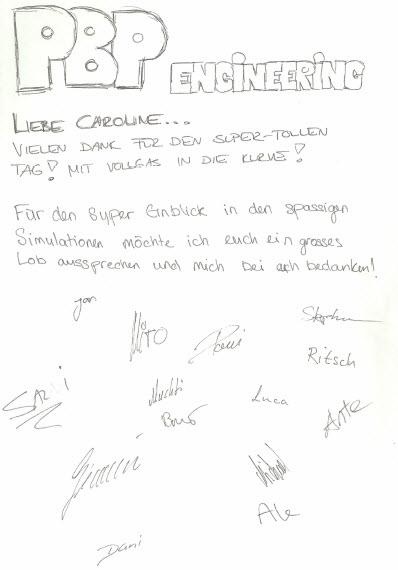 PBP ENGINEERING
LIEBE CAROLINE...
VIELEN DANK FÜR DEN SUPER-TOLLEN
TAG! MIT VOLLGAS IN DIE KURVE!
Für den super Einblick in den spassigen
Simulationen möchte ich euch ein grosses
Lob aussprechen und mich bei euch bedanken!
Jan
Mito
Ritsch
Luca
Ante
Ale
Dani